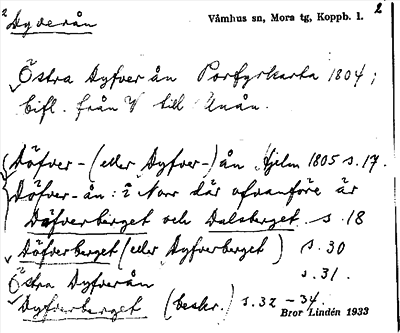 2 Dyverån
Våmhus sn, Mora tg, Koppb. l. 2
Östra Dyfver ån Porfyrkarta 1804;
bifl. från V till Unån.
Döfver-(eller Dyfver-)ån, Hjelm 1805 s. 17.
Döfver-ån: i Norr där ofvanföre är
Döfverberget och Dalsberget s. 18
Döfverberget (eller Dyfverberget) s. 30
Östra Dyfverån s. 31.
Dyfverberget (beskr.) s. 32-34.
Bror Lindén 1933